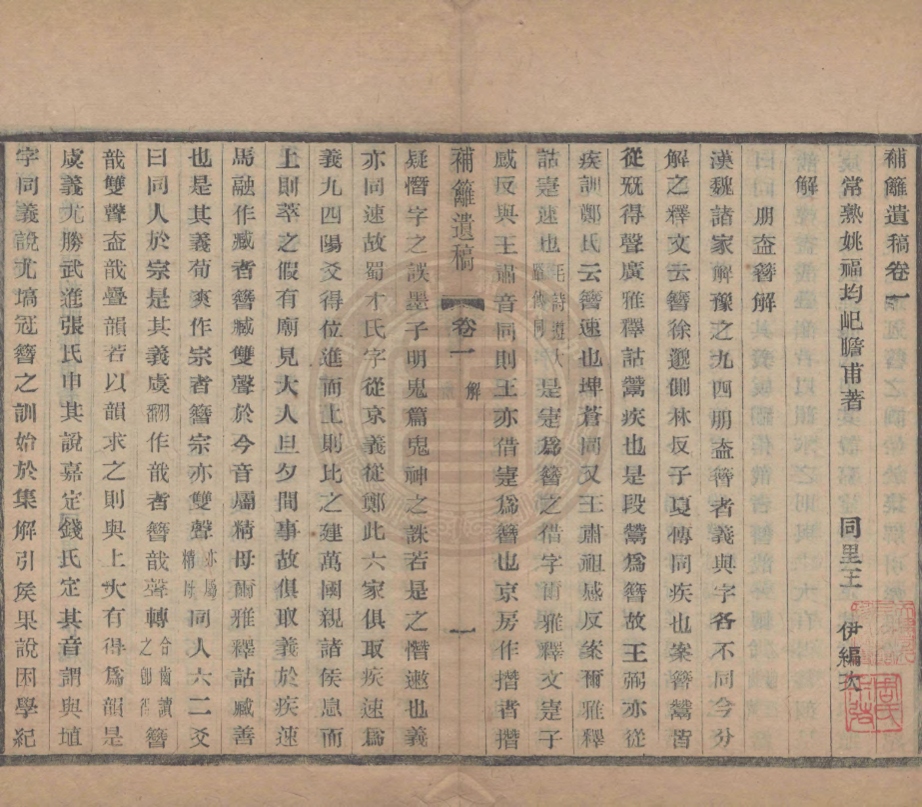 補籬遺稿卷一
常熟姚福均屺瞻甫著　同里王　伊編次
解
朋盍簪解
漢魏諸家解豫之九四朋盍簪者義與字各不同今分
解之釋文云簪徐遬側林反子夏傳同疾也案簪鬵皆
從兓得聲廣雅釋詁鬵疾也是段鬵爲簪故王弼亦從
疾訓鄭氏云簪速也埤蒼同又王肅祖感反案爾雅釋
詁寁速也毛詩遵大路傳同是寁爲簪之借字爾雅釋文寁子
感反與王肅音同則王亦借寁爲簪也京房作撍者撍
補籬遺稿　卷一　解　一
疑憯字之誤墨子明鬼篇鬼神之誅若是之憯遬也義
亦同速故蜀才氏字從京義從鄭此六家俱取疾速爲
義九四陽爻得位進而上則比之建萬國親諸侯息而
上則萃之假有廟見大人旦夕間事故俱取義於疾速
馬融作臧者簪臧雙聲於今音屬精母爾雅釋詁臧善
也是其義荀爽作宗者簪宗亦雙聲亦屬精母同人六二爻
曰同人於宗是其義虞翻作戠者簪戠聲轉合齒讀之卽得簪
戠雙聲盍戠疊韻若以韻求之則與上大有得爲韻是
虞義尤勝武進張氏申其說嘉定錢氏定其音謂與埴
字同義說尤塙冠簪之訓始於集解引侯果說困學紀